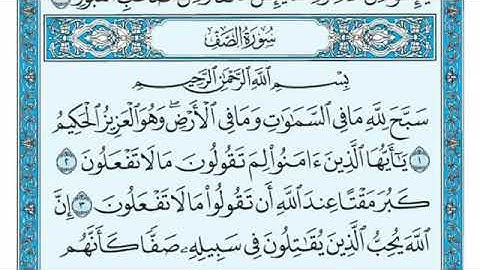 سُورَةُ الصَّفِّ
بِسْمِ اللَّهِ الرَّحْمَٰنِ الرَّحِيمِ
سَبَّحَ لِلَّهِ مَا فِي السَّمَاوَاتِ وَمَا فِي الْأَرْضِ ۖ وَهُوَ الْعَزِيزُ الْحَكِيمُ
١ يَٰٓأَيُّهَا الَّذِينَ ءَامَنُوا لِمَ تَقُولُونَ مَا لَا تَفْعَلُونَ ٢
كَبُرَ مَقْتًا عِندَ اللَّهِ أَن تَقُولُوا مَا لَا تَفْعَلُونَ ٣ إِنَّ
اللَّهَ يُحِبُّ الَّذِينَ يُقَٰتِلُونَ فِي سَبِيلِهِۦ صَفًّا كَأَنَّهُم